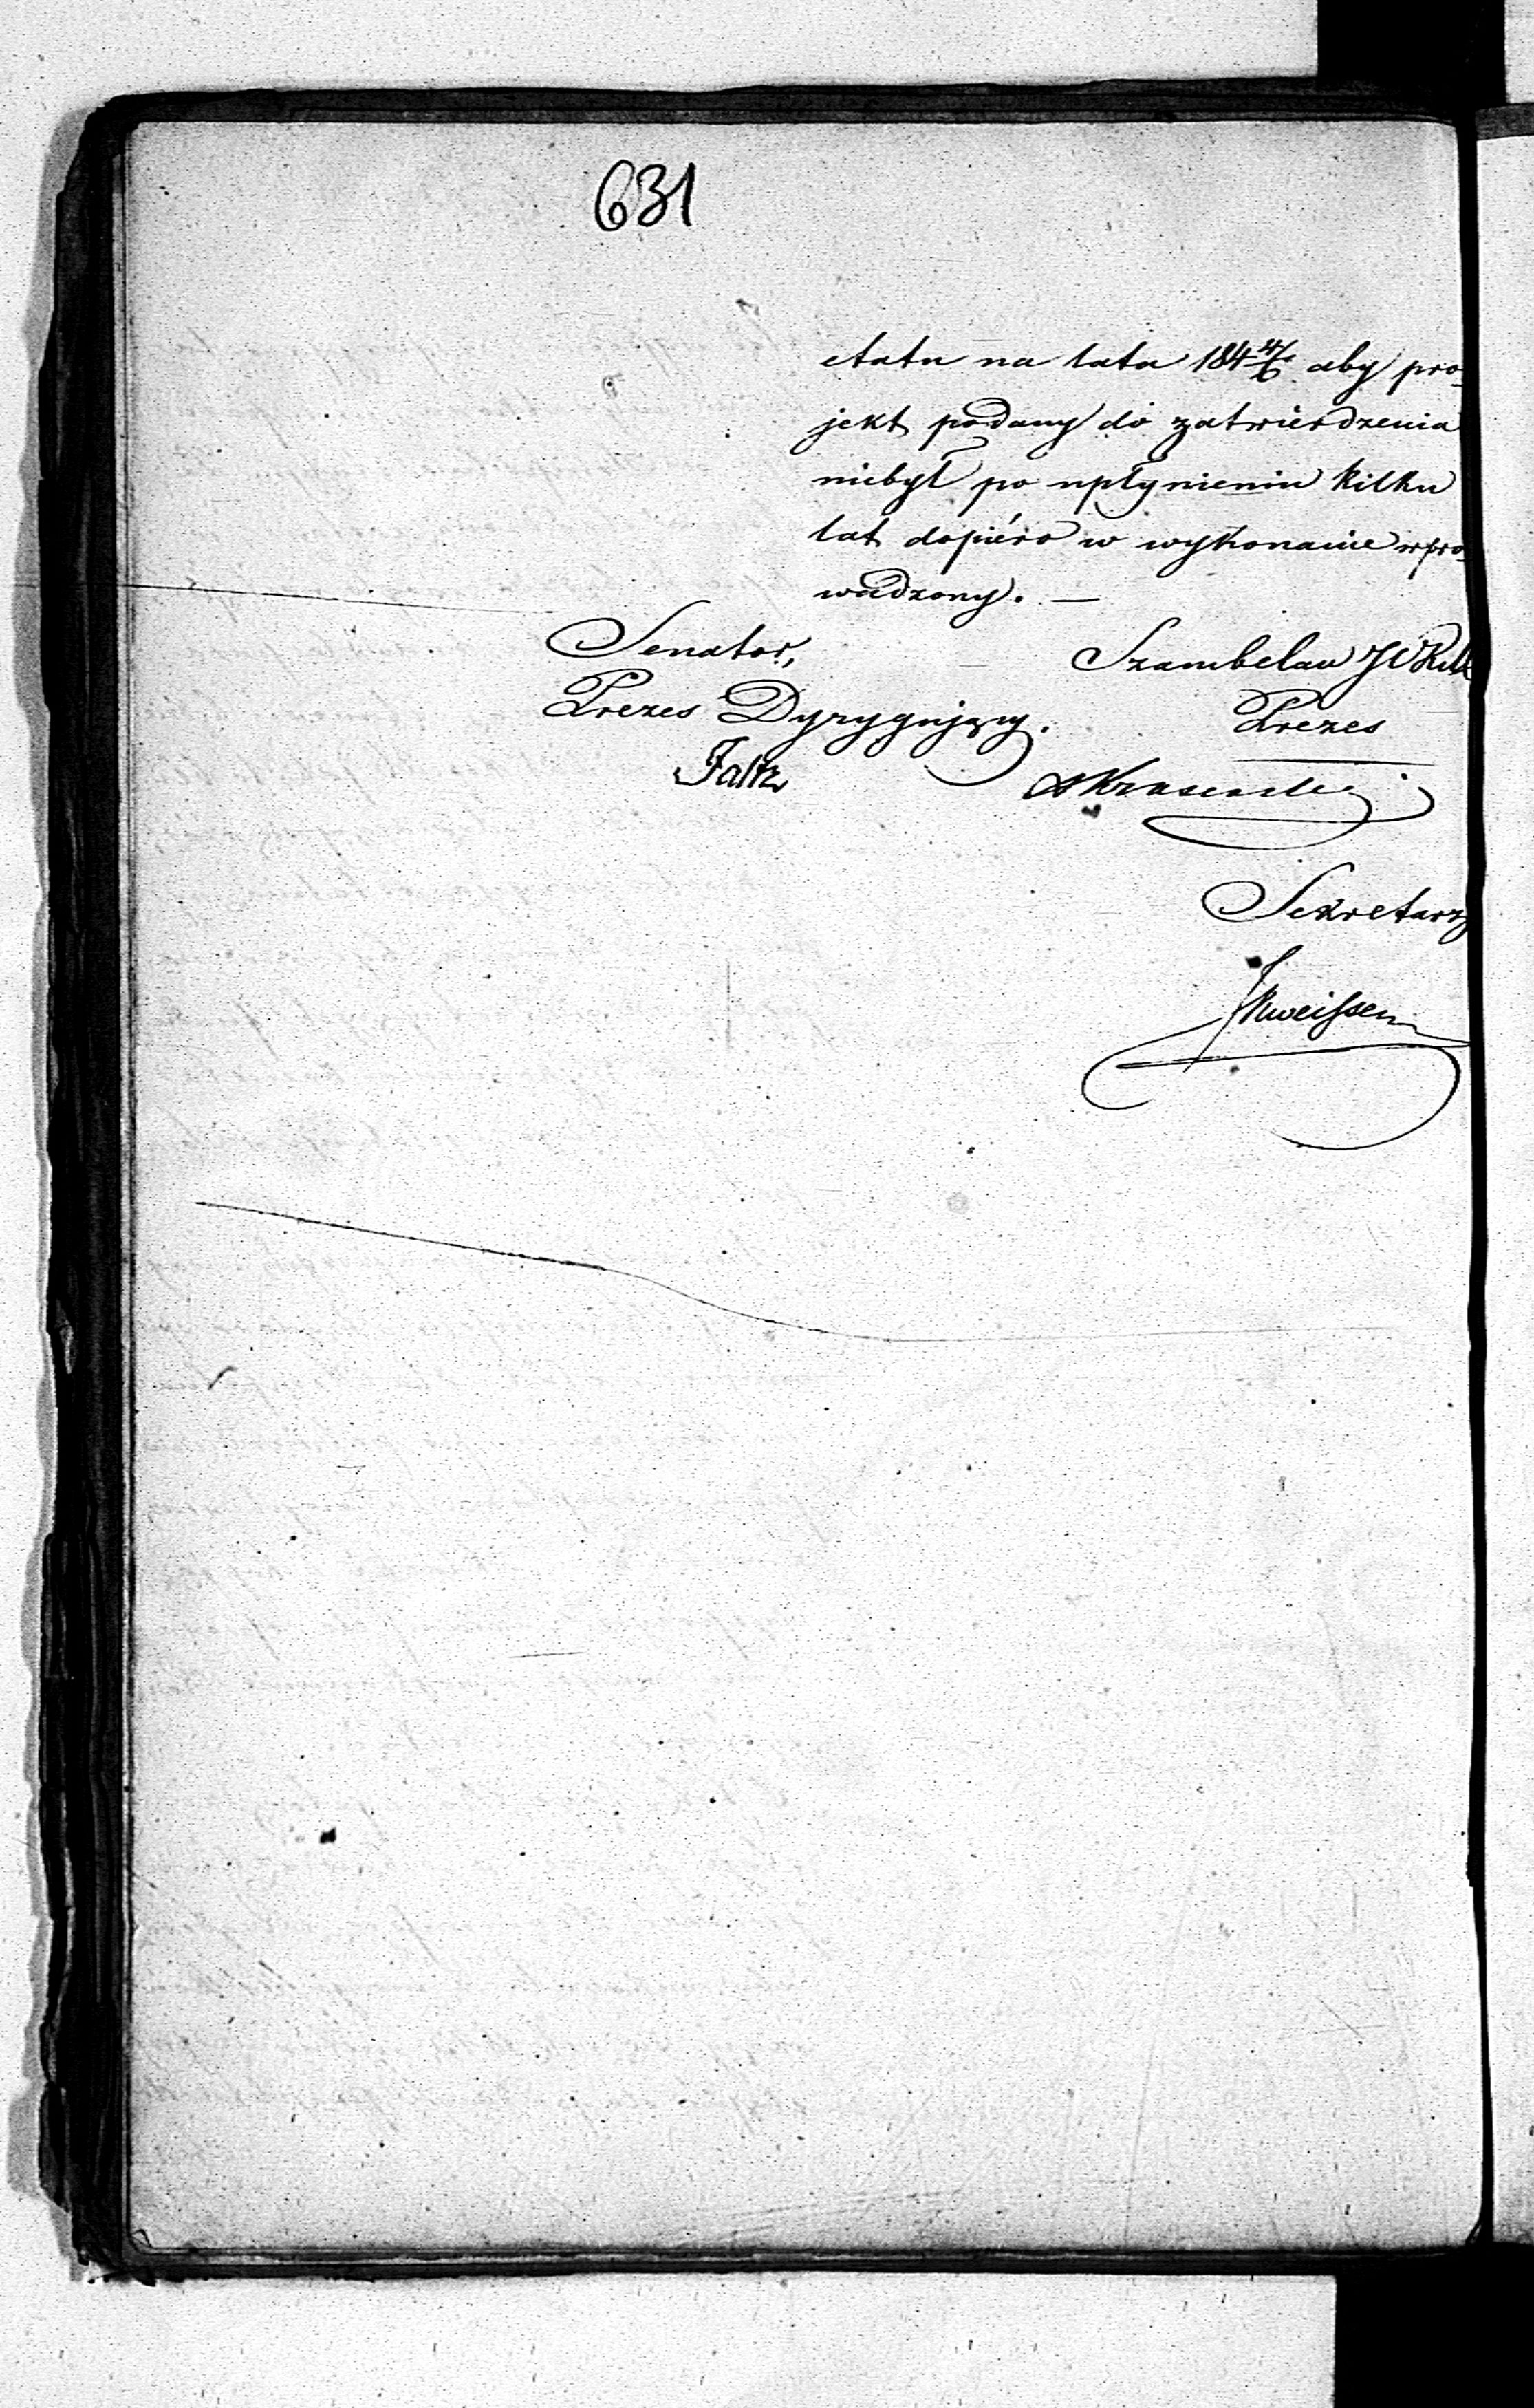 631
etatu na lata 184 4/6 aby pro-
jekt podany do zatwierdzenia
niebył po upłynieniu kilku
lat dopiéro w wykonanie wpro-
wadzony. —
Senator,
Prezes Dyrygujący.
Szambelan
Prezes
Sekretarz